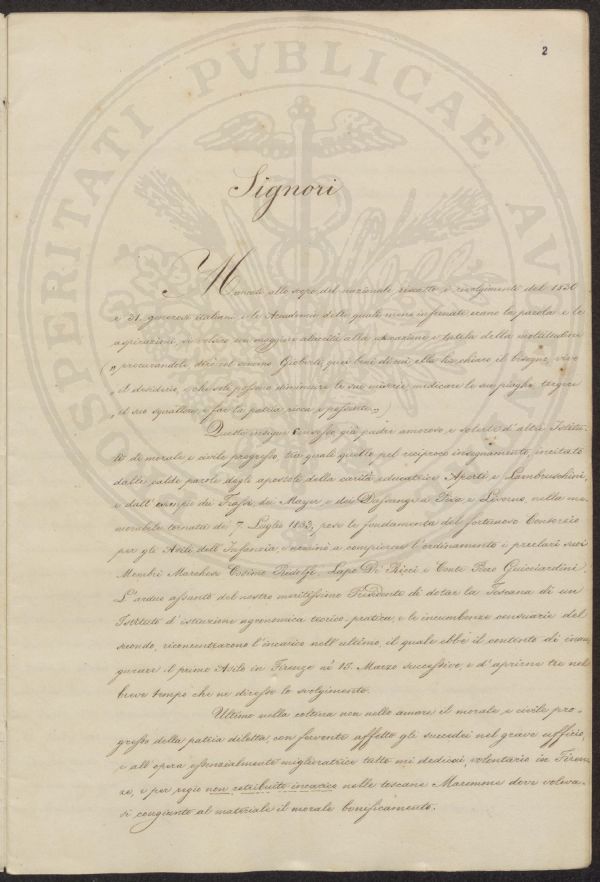 2
PROSPERITATI PVBLICAE AVGENDAE
Signori
Mancati allo scopo del nazionale riscatto i rivolgimenti del 1830
e 31, generosi italiani e le Accademie delle quali meno infrenate erano la parola e le
aspirazioni, si volsero con maggiore alacrità alla educazione e tutela della moltitudine
(„ procurandole dirò col sommo Gioberti, quei beni di cui ella ha chiaro il bisogno, vivo
„ il desiderio, e che soli possono diminuire le sue miserie medicare le sue piaghe, tergere
„ il suo squallore, e far la patria ricca e possente.„)
Questo insigne Consesso, già padre amoroso, e solerte di altri Istitu-
ti di morale e civile progresso tra quali quello pel reciproco insegnamento, incitato
dalle calde parole degli apostoli della carità educatrice Aporti e Lambruschini,
e dall'esempio dei Frassi, dei Mayer e dei Dussauge a Pisa e Livorno, nella me-
morabile tornata de' 7. Luglio 1833, pose le fondamenta del fortunoso Consorzio
per gli Asili dell'Infanzia, e nominò a compierne l'ordinamento i preclari suoi
Membri Marchese Cosimo Ridolfi, Lapo De' Ricci e Conte Piero Guicciardini.
L'arduo assunto del nostro meritissimo Presidente di dotare la Toscana di un
Istituto d'istruzione agronomica teorico-pratica, e le incumbenze censuarie del
secondo, riconcentrarono l'incarico nell'ultimo, il quale ebbe il contento di inau-
gurare il primo Asilo in Firenze a' 15. Marzo successivo, e d'aprirne tre nel
breve tempo che ne diresse lo svolgimento.
Ultimo nella coltura non nello amore il morale, e civile pro-
gresso della patria diletta, con fervente affetto gli succedei nel grave ufficio,
e all'opera essenzialmente miglioratrice tutto mi dedicai, volontario in Firen-
ze, e per regio non retribuito incarico nelle toscane Maremme dove voleva-
si congiunto al materiale il morale bonificamento.